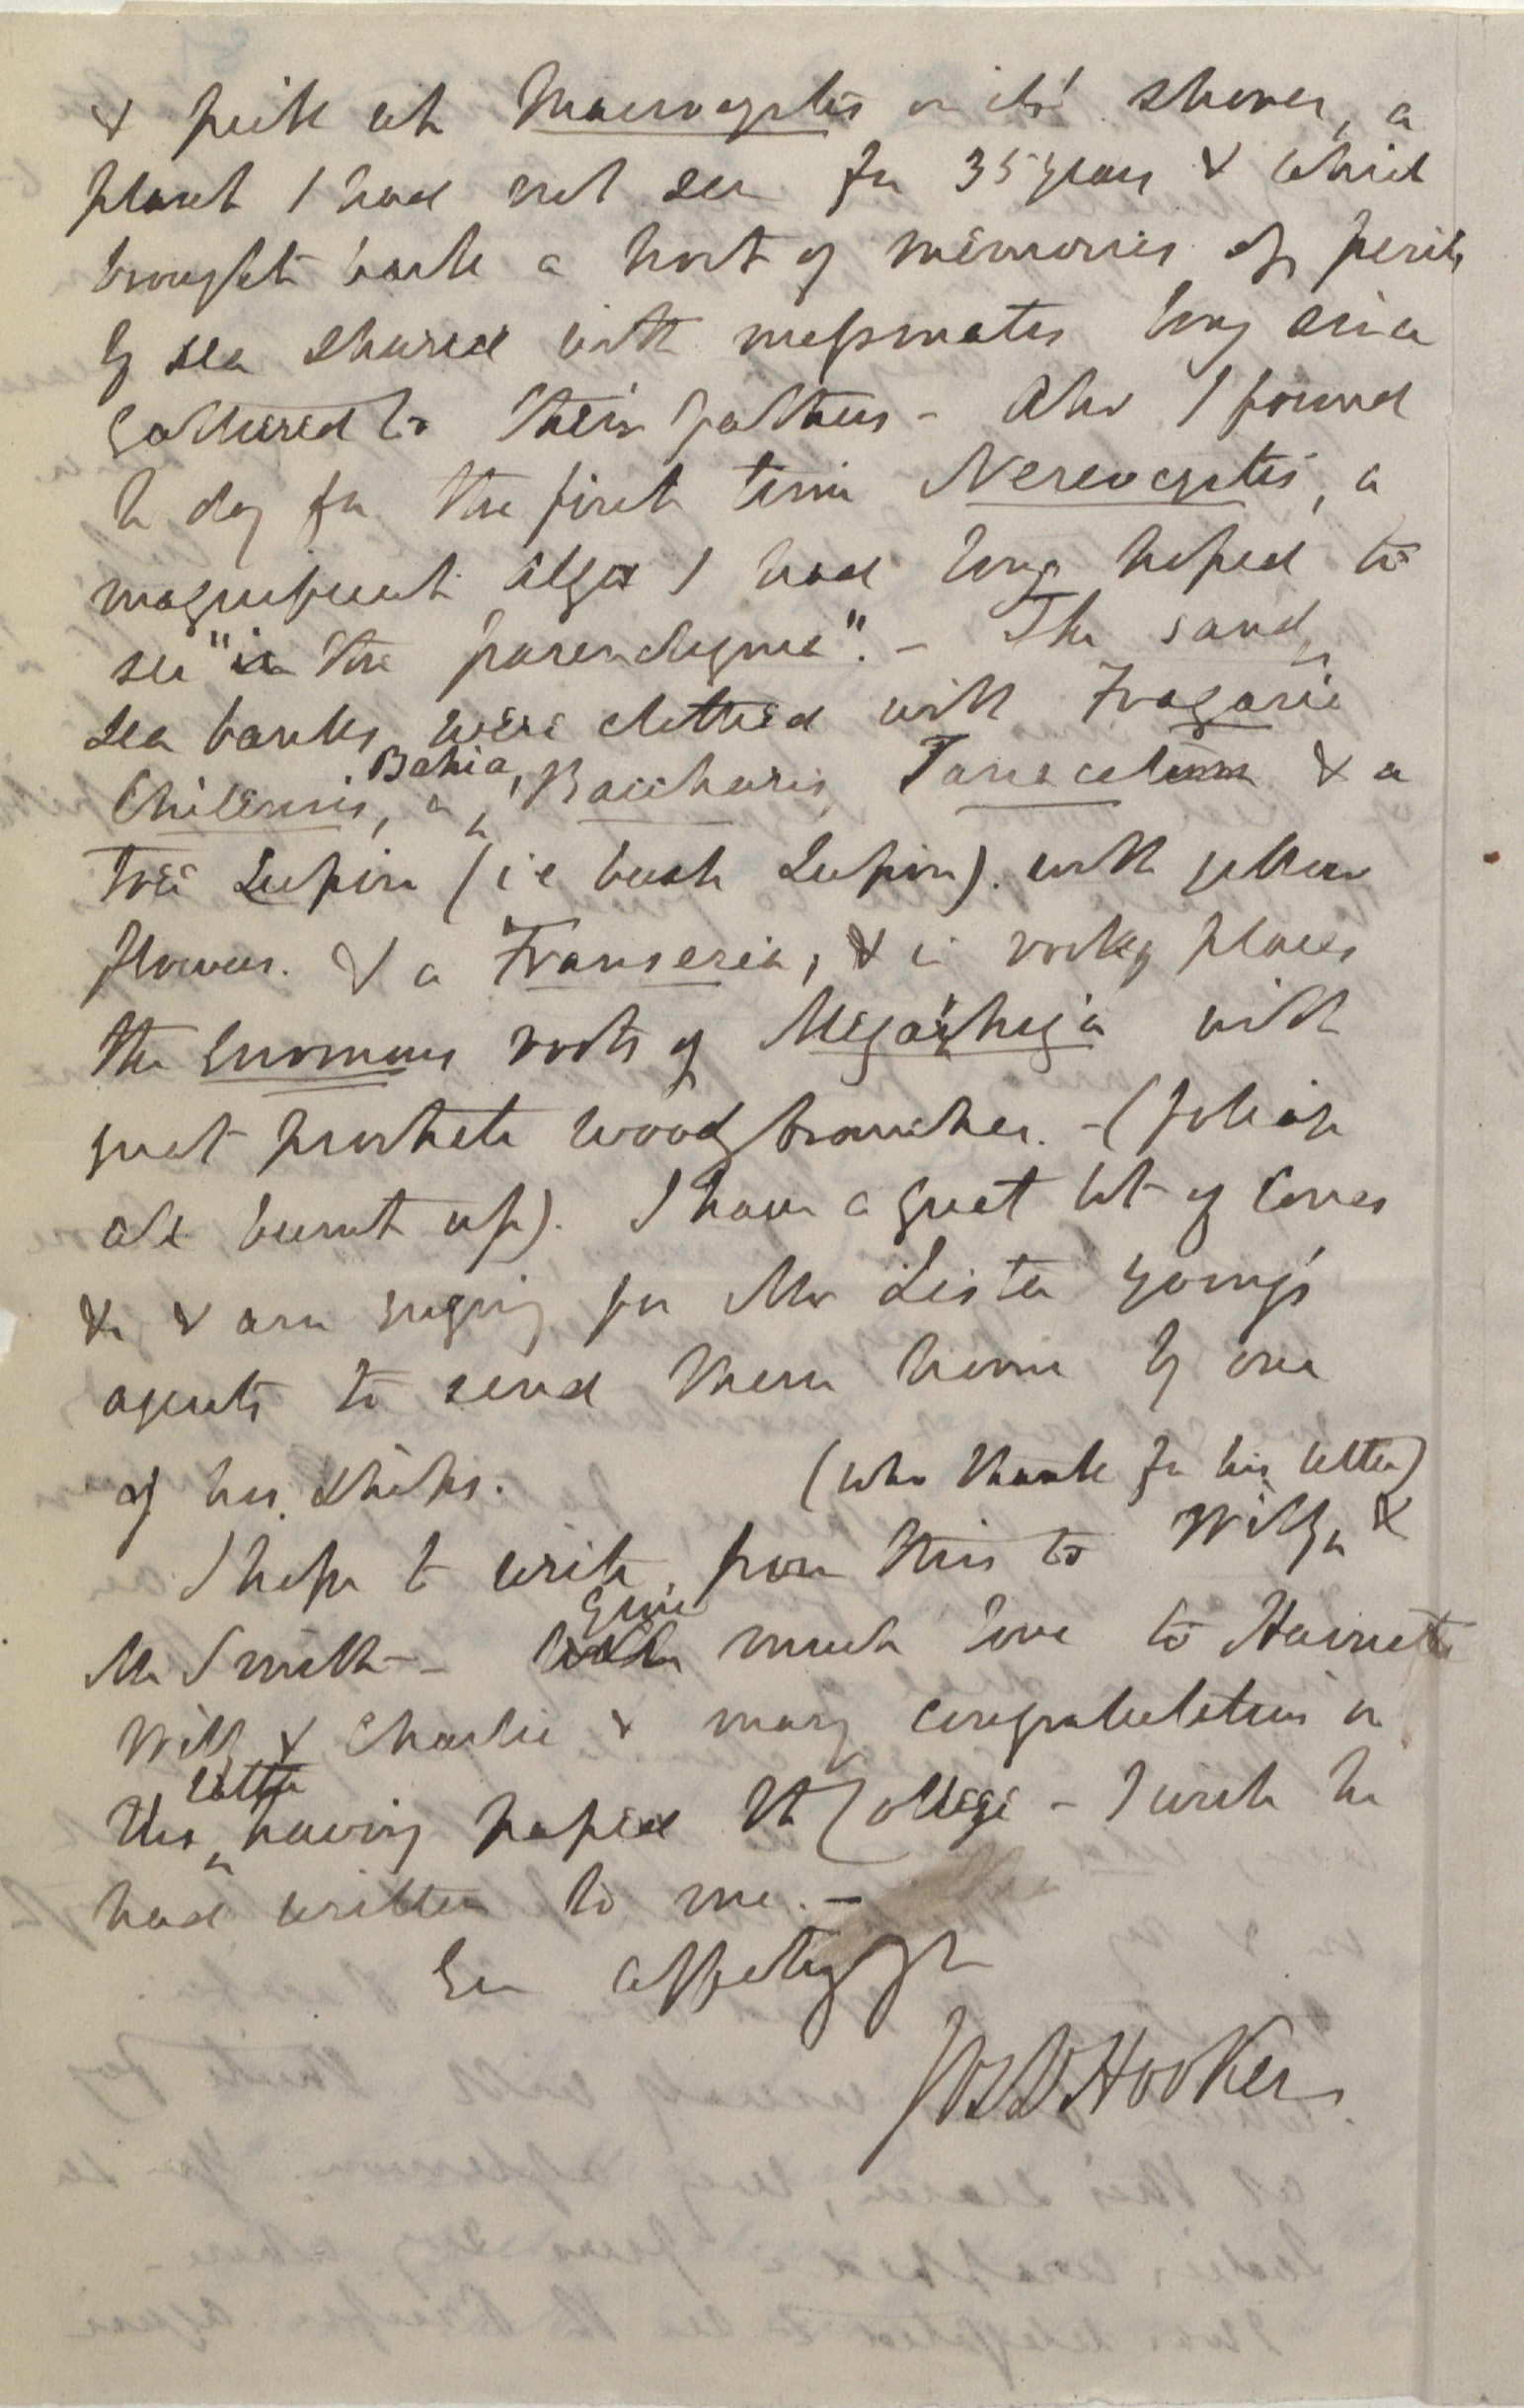 & pick up Macrocystis on its' shores, a
plant I had not seen for 35 years & which
brought back a host of memories of perils
by sea shared with messmates long since
gathered to their fathers — Also I found
to day for the first time Nereocystis, a
magnificent alga I had long hoped to
see "in the
". — The sandy
sea banks were clothed with Fragaria
Chilensis, a Bahia, Baccharis, Tanacetum & a
tree Lupin (i e bush Lupin). with yellow
flowers. & a Franseria, & in rocky places
the enormous roots of Megarrhiza with
great prostrate woody branches. — (foliage
all burnt up). I have a great lot of Cones
&c & am
for Mr Lister
agents to send them home by one
of his ships.
(who thank for his letter)
I hope to write from this to Willy &
Mr Smith — Give much love to Harriet
Willy & Charlie & many congratulations on
the latter having passed the College — I wish he
had written to me. —
Ever affecty yr
Jos D Hooker